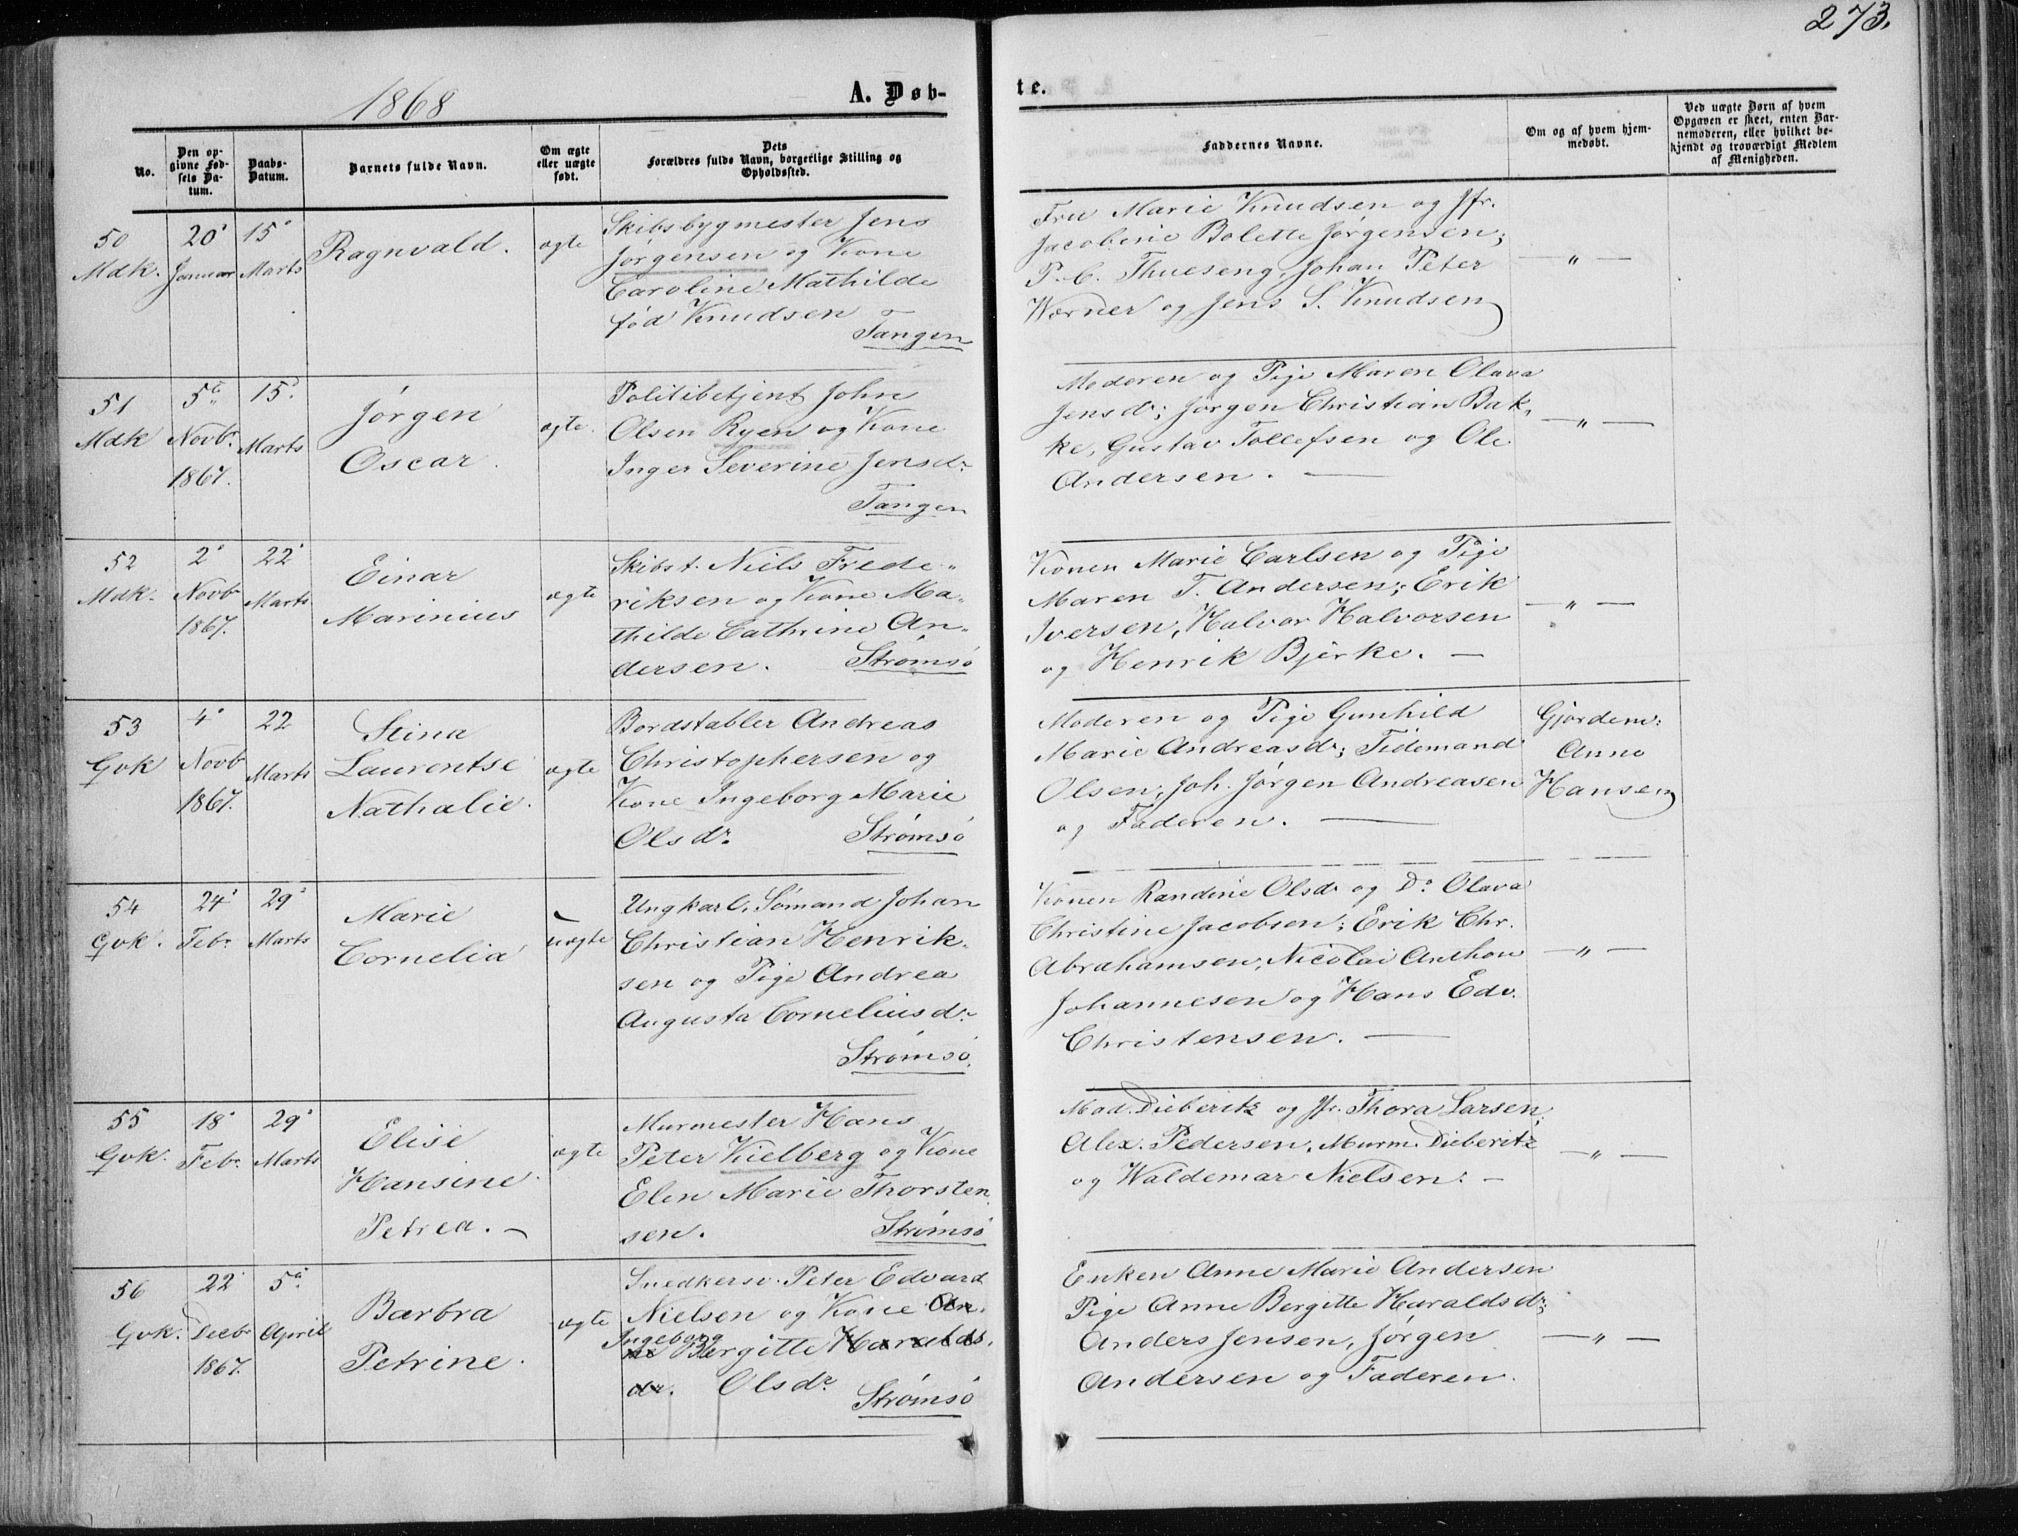 273.
1868
A. Døb-
te.
No.
Den op-
givne Fød-
sels Da-
tum.
Daabs-
Datum.
Barnets fulde Navn.
Om ægte
eller uægte
født.
Dets
Forældres fulde Navn, borgerlige Stilling og
Opholdssted.
Faddernes Navne.
Om og af hvem hjem-
medøbt.
Ved uægte Børn af hvem
Opgaven er skeet, enten Bar-
nemoderen, eller hvilket be-
kjendt og troværdigt Medlem
af Menigheden.
50
Mdk.
20'
Januar
15'
Marts
Ragnvald.
ægte
Skibsbygmester Jens
Jørgensen og Kone
Caroline Mathilde
fød Knudsen
Tangen
Fru Marie Knudsen og Jfr.
Jacobine Bolette Jørgensen;
P. C. Thueseng, Johan Peter
Wærner og Jens S. Knudsen
— " —
51
Mdk
5te
Novbr.
1867.
15'
Marts
Jørgen
Oscar.
ægte.
Politibetjent John
Olsen Ryen og Kone
Inger Severine Jensdr.
Tangen
Moderen og Pige Maren Olava
Jensdr; Jørgen Christian Bak-
ke, Gustav Tollefsen og Ole
Andersen. —
— " —
52
Mdk.
2'
Novbr
1867.
22'
Marts
Einar
Marinius
ægte
Skibst. Niels Frede-
riksen og Kone Ma-
thilde Cathrine An-
dersen.
Strømsø
Konen Marie Carlsen og Pige
Maren T. Andersen; Erik
Iversen, Halvor Halvorsen
og Henrik Bjerke. —
— " —
53
Gvk
4'
Novb
1867.
22
Marts
Stina
Laurentse
Nathalie.
ægte
Bordstabler Andreas
Christophersen og
Kone Ingeborg Marie
Olsdr.
Strømsø
Moderen og Pige Gunhild
Marie Andreasdr; Tidemand
Olsen, Joh. Jørgen Andreasen
og Faderen. —
Gjordem:
Anne
Hansen
54
Gvk.
24'
Febr.
29'
Marts
Marie
Cornelia
uægte
Ungkarl, Sømand Johan
Christian Henrik-
sen og Pige Andrea
Augusta Corneliusdr.
Strømsø.
Konen Randine Olsdr og Do Olava
Christine Jacobsen; Erik Chr.
Abrahamsen, Nicolai Anthon
Johannesen og Hans Edv.
Christensen. —
— " —
55
Gvk.
18'
Febr.
29'
Marts
Elise
Hansine
Petrea. —
ægte
Murmester Hans
Peter Kielberg og Kone
Elen Marie Thorsten
sen.
Strømsø
Mad. Dieberitz og Jfr. Thora Larsen,
Alex. Pedersen, Murm. Dieberitz
og Waldemar Nielsen: —
— " —
56
Gvk.
22'
Decbr
1867.
5te
April
Barbra
Petrine.
ægte
Snedkersv. Peter Edvard
Nielsen og Kone An-
Ingeborg
ne Bergitte Haralds-
dr. Olsdr.
Strømsø
Enken Anne Marie Andersen
Pige Anne Bergitte Haraldsdr;
Anders Jensen, Jørgen
Andersen og Faderen.
— " —